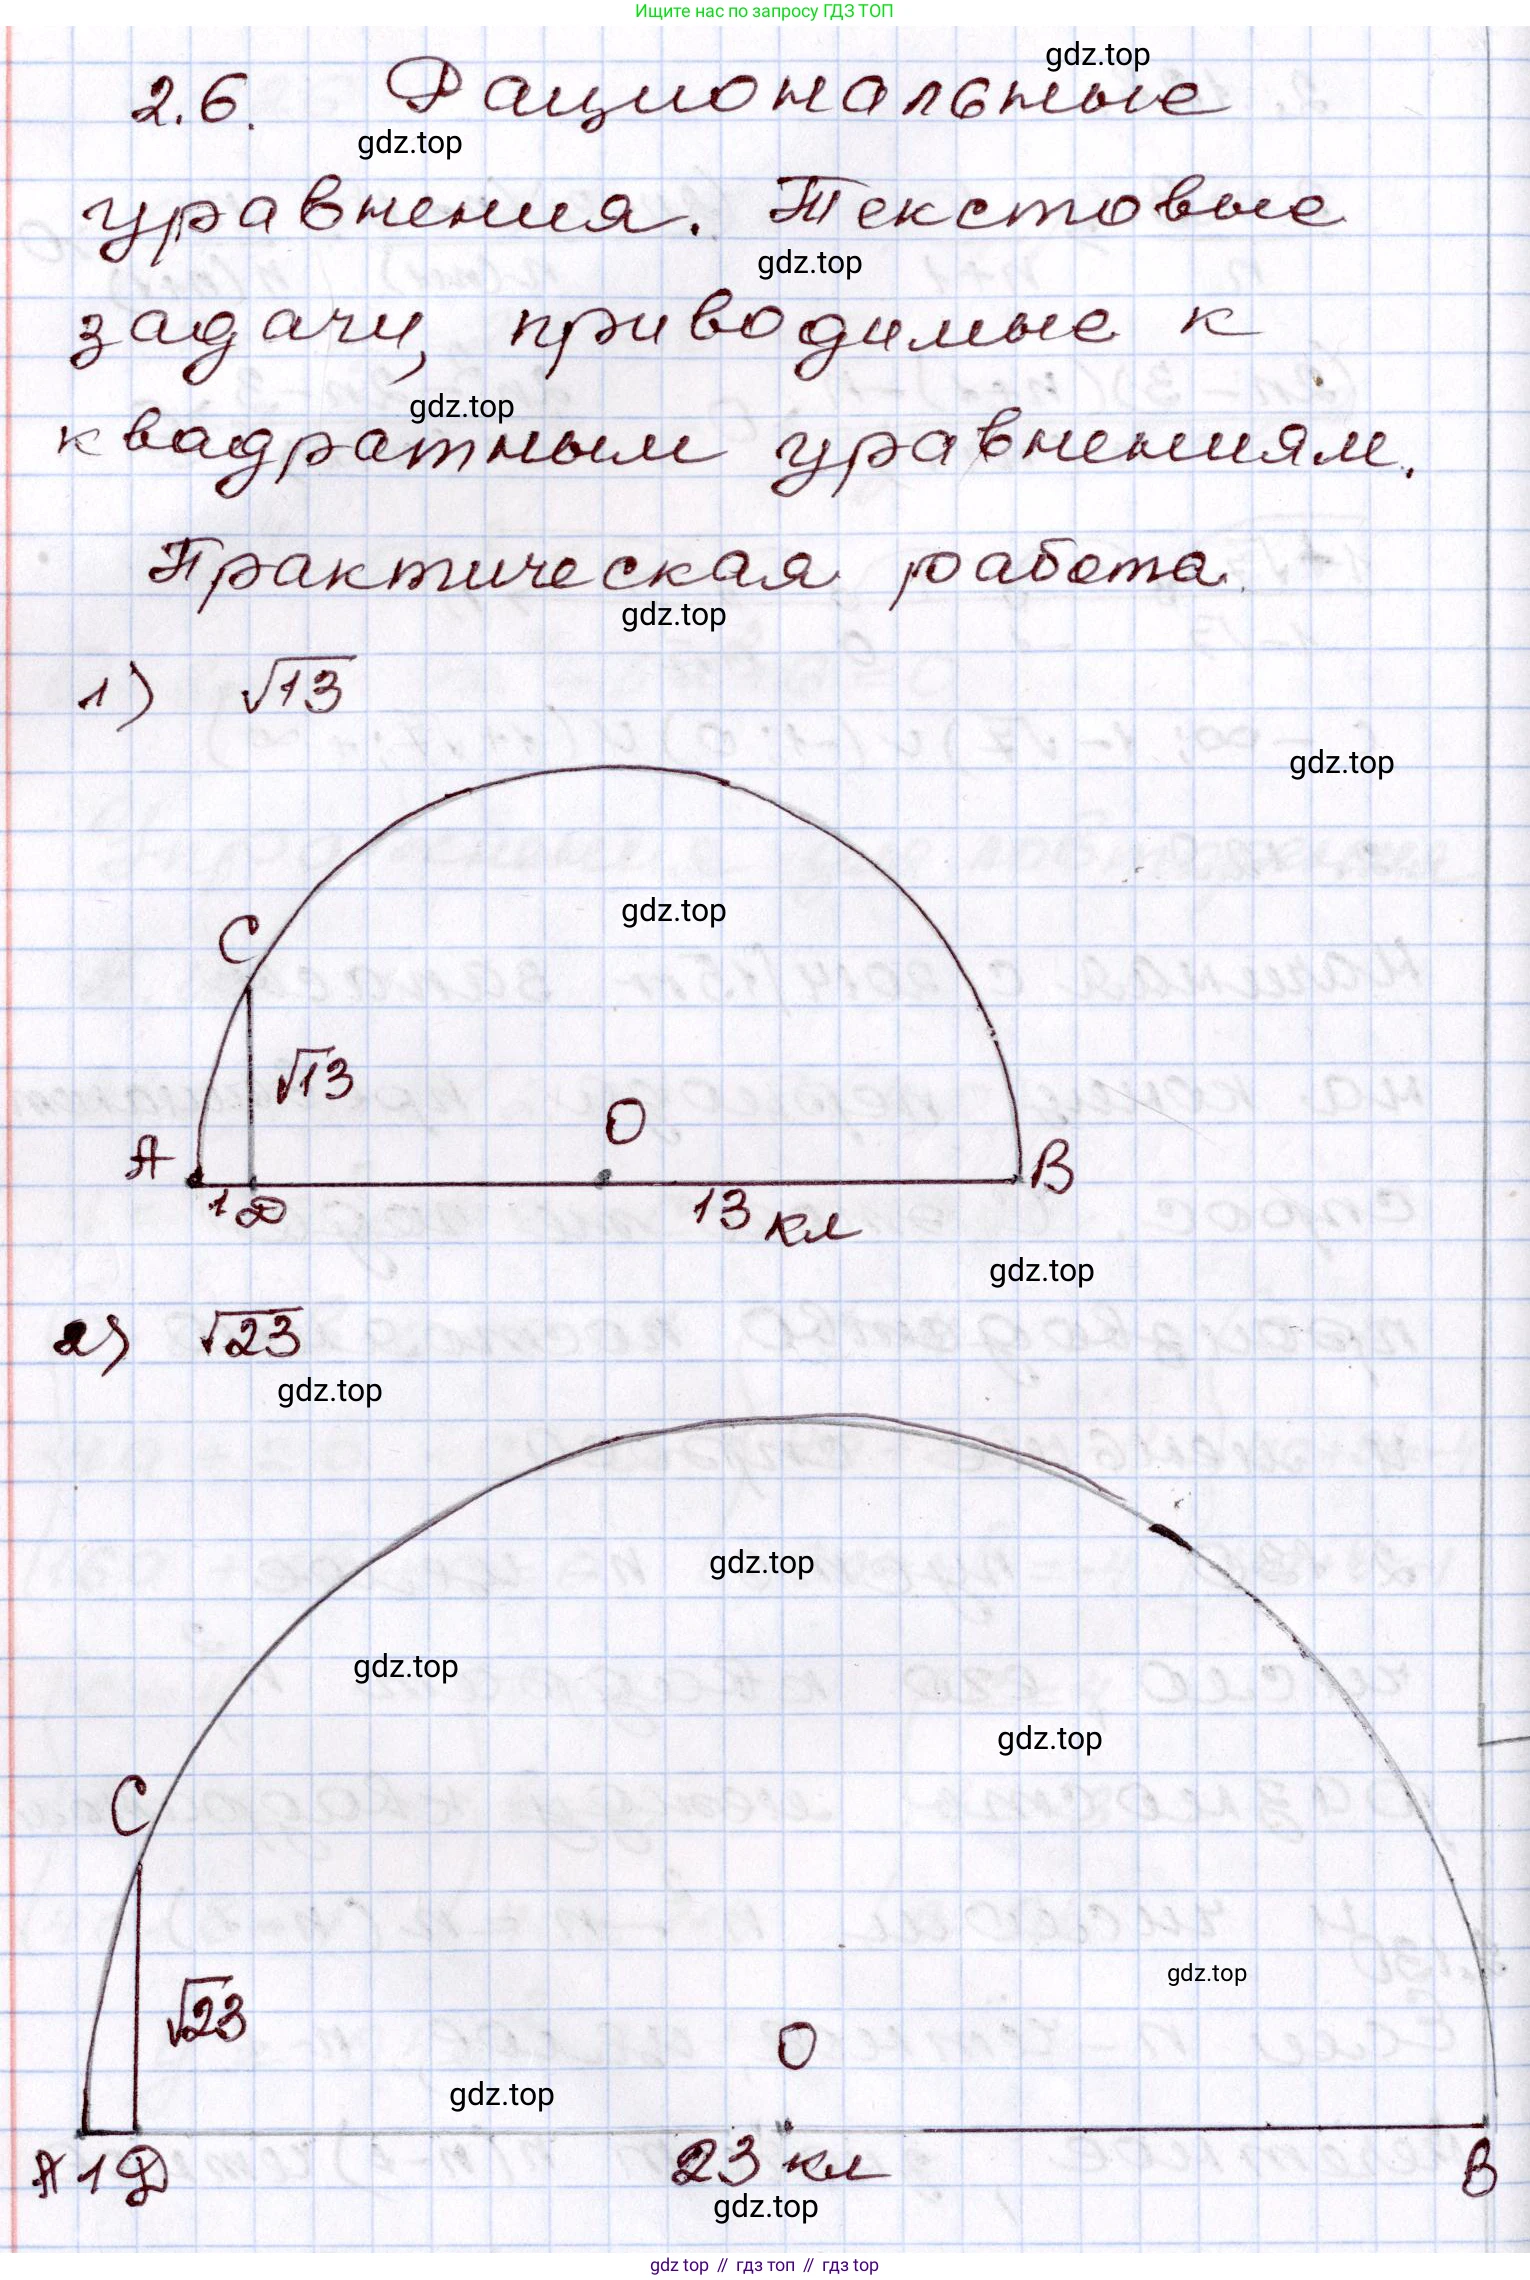 Ищите нас по запросу ГДЗ ТОП
gdz.top
2.6. Рациональные
gdz.top
уравнения. Текстовые
gdz.top
задачи, приводимые к
gdz.top
квадратным уравнениям.
Практическая работа.
gdz.top
1) √13
gdz.top
gdz.top
C
√13
O
A
B
1 D
13 кл
gdz.top
2) √23
gdz.top
gdz.top
gdz.top
gdz.top
C
gdz.top
√23
O
gdz.top
A 1 D
23 кл
B
gdz.top
gdz top // гдз топ // гдз top